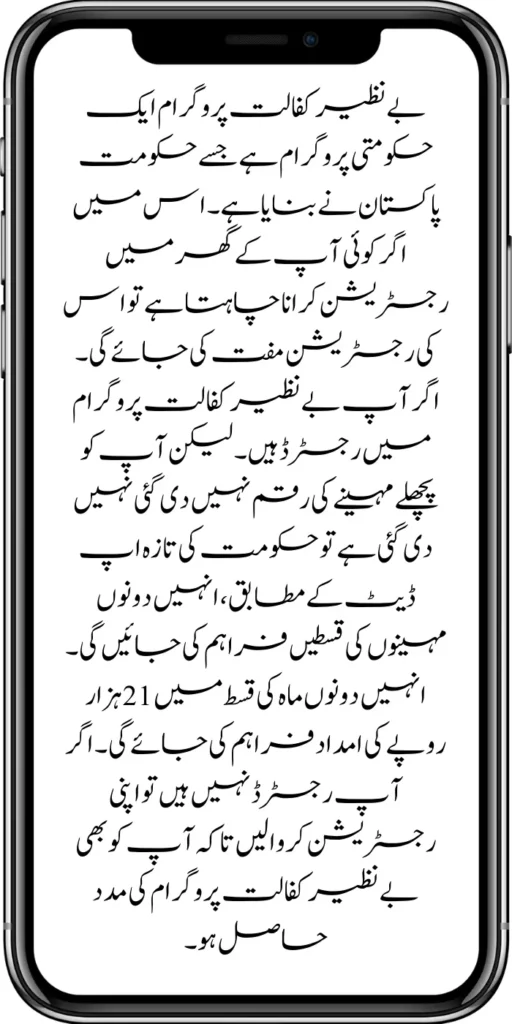 بے نظیر کفالت پروگرام ایک
حکومتی پروگرام ہے جسے حکومت
پاکستان نے بنایا ہے۔ اس میں
اگر کوئی آپ کے گھر میں
رجسٹریشن کرانا چاہتا ہے تو اس
کی رجسٹریشن مفت کی جائے گی۔
اگر آپ بے نظیر کفالت پروگرام
میں رجسٹرڈ ہیں۔ لیکن آپ کو
پچھلے مہینے کی رقم نہیں دی گئی نہیں
دی گئی ہے تو حکومت کی تازہ اپ
ڈیٹ کے مطابق، انہیں دونوں
مہینوں کی قسطیں فراہم کی جائیں گی۔
انہیں دونوں ماہ کی قسط میں 21 ہزار
روپے کی امداد فراہم کی جائے گی۔ اگر
آپ رجسٹرڈ نہیں ہیں تو اپنی
رجسٹریشن کروا لیں تاکہ آپ کو بھی
بے نظیر کفالت پروگرام کی مدد
حاصل ہو۔